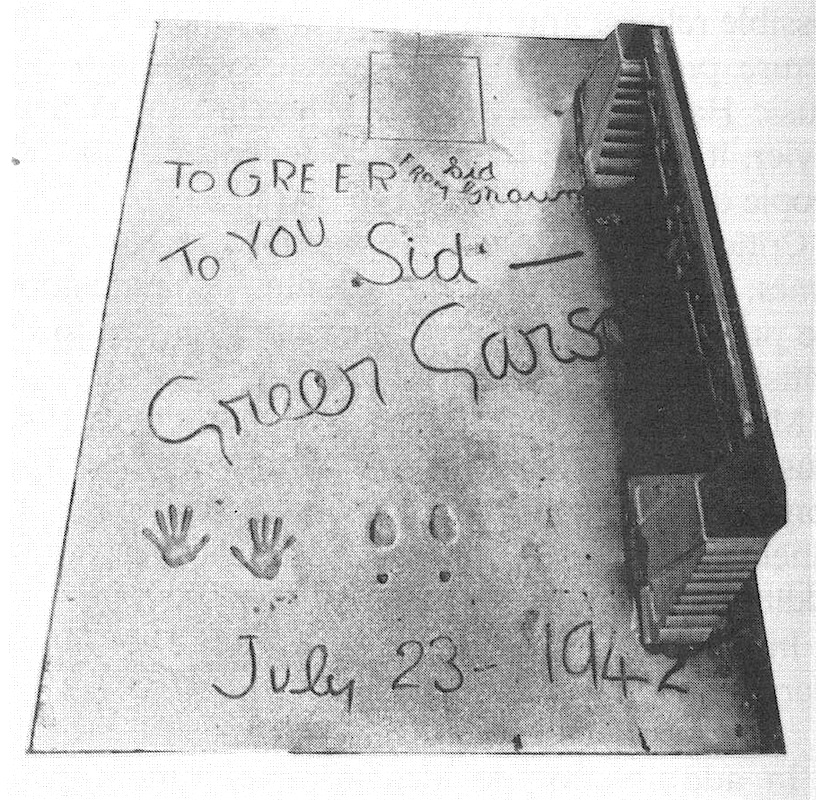 TO GREER FROM Sid Grauman
TO YOU Sid —
Greer Garso
July 23- 1942